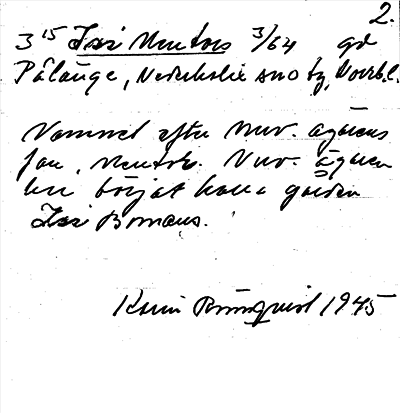 2.
3 15 Issi Mentors 3/64 gd
Pålänge, Nederkalix sn o tg, Norrb.l.
Namnet efter nuv. ägarens
far, Mentor. Nuv. ägaren
har börjat kalla gården
Issi Bomans.
Karin Brunnquist 1945